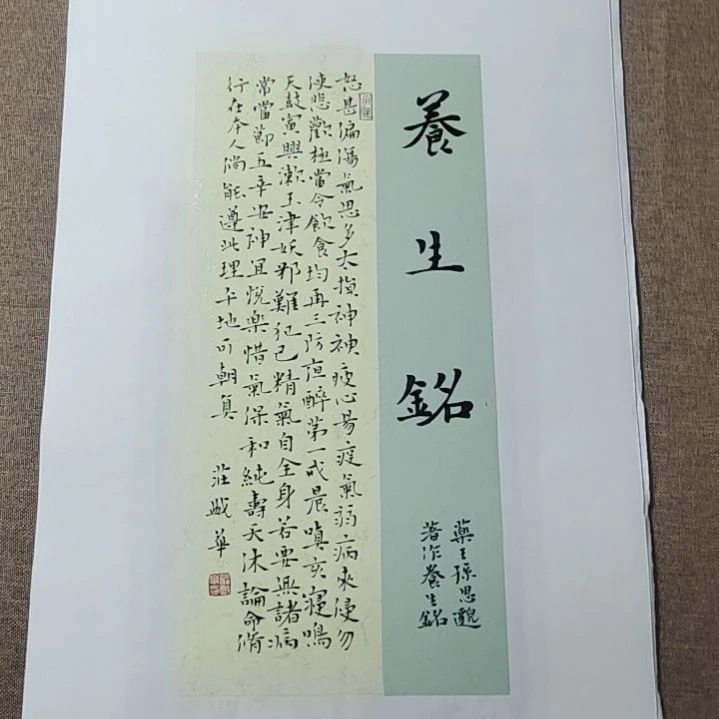 養生銘
藥王孫思邈
著作養生銘
怒甚偏傷氣思多太損神神疲心易疫氣弱病來侵勿
使悲歡極當令飲食均再三防亱醉第一戒晨嗔亥寢鳴
天鼓寅興漱玉津妖邪難犯己精氣自全身若要無諸病
常當節五辛安神宜悅楽惜氣保和純壽夭休論命脩
行在本人倘能遵此理平地可朝真
莊 華